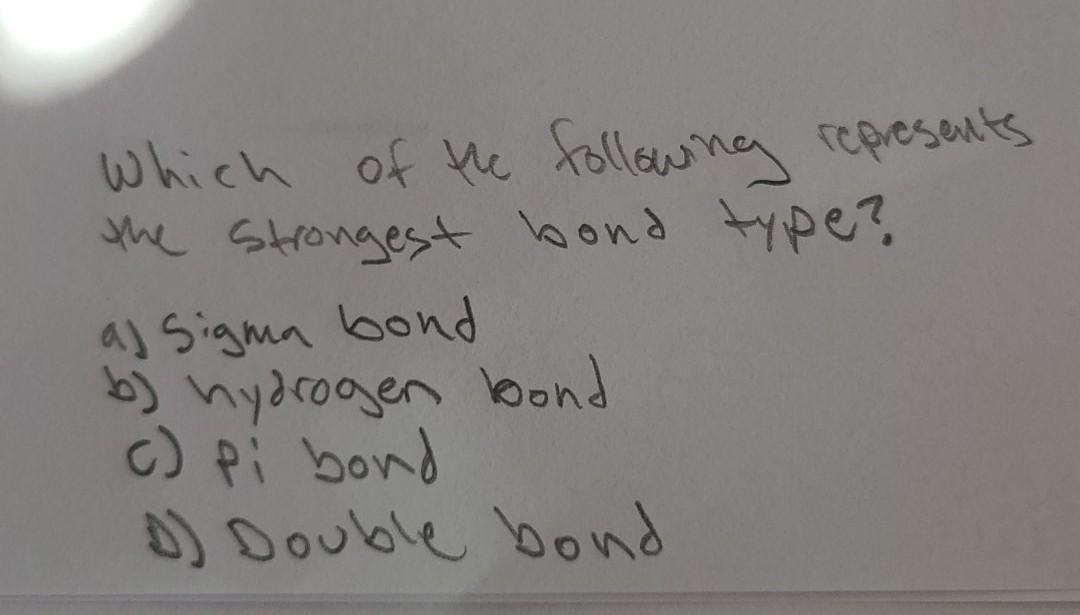 Which of the following represents
the strongest bond type?
a) Sigma bond
b) hydrogen bond
c) Pi bond
D) Double bond